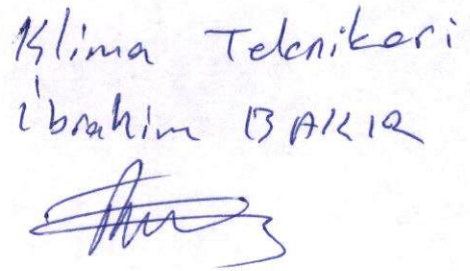 Klima Teknikeri
İbrahim BAKIR